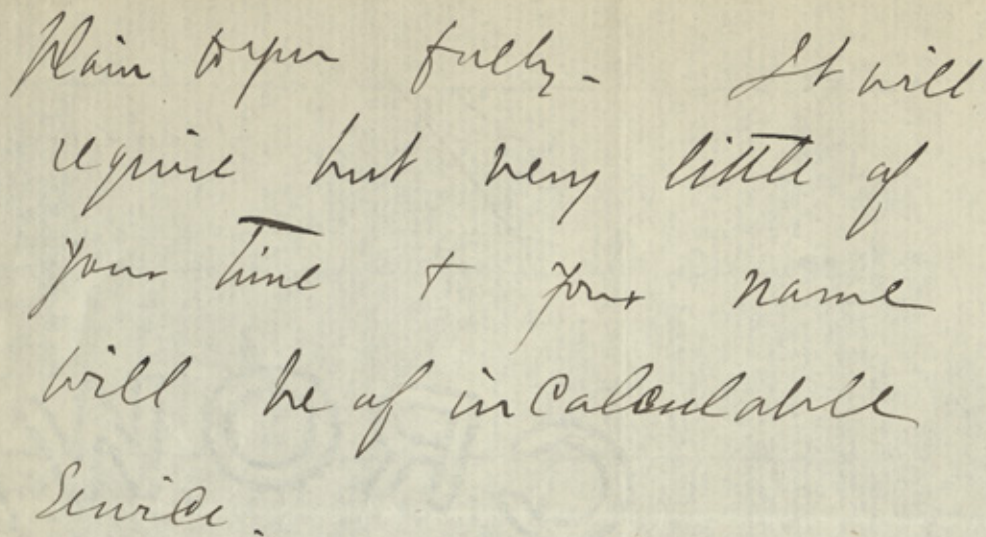 plain to you fully. It will
require but very little of
your time + your name
will be of incalculable
Service.